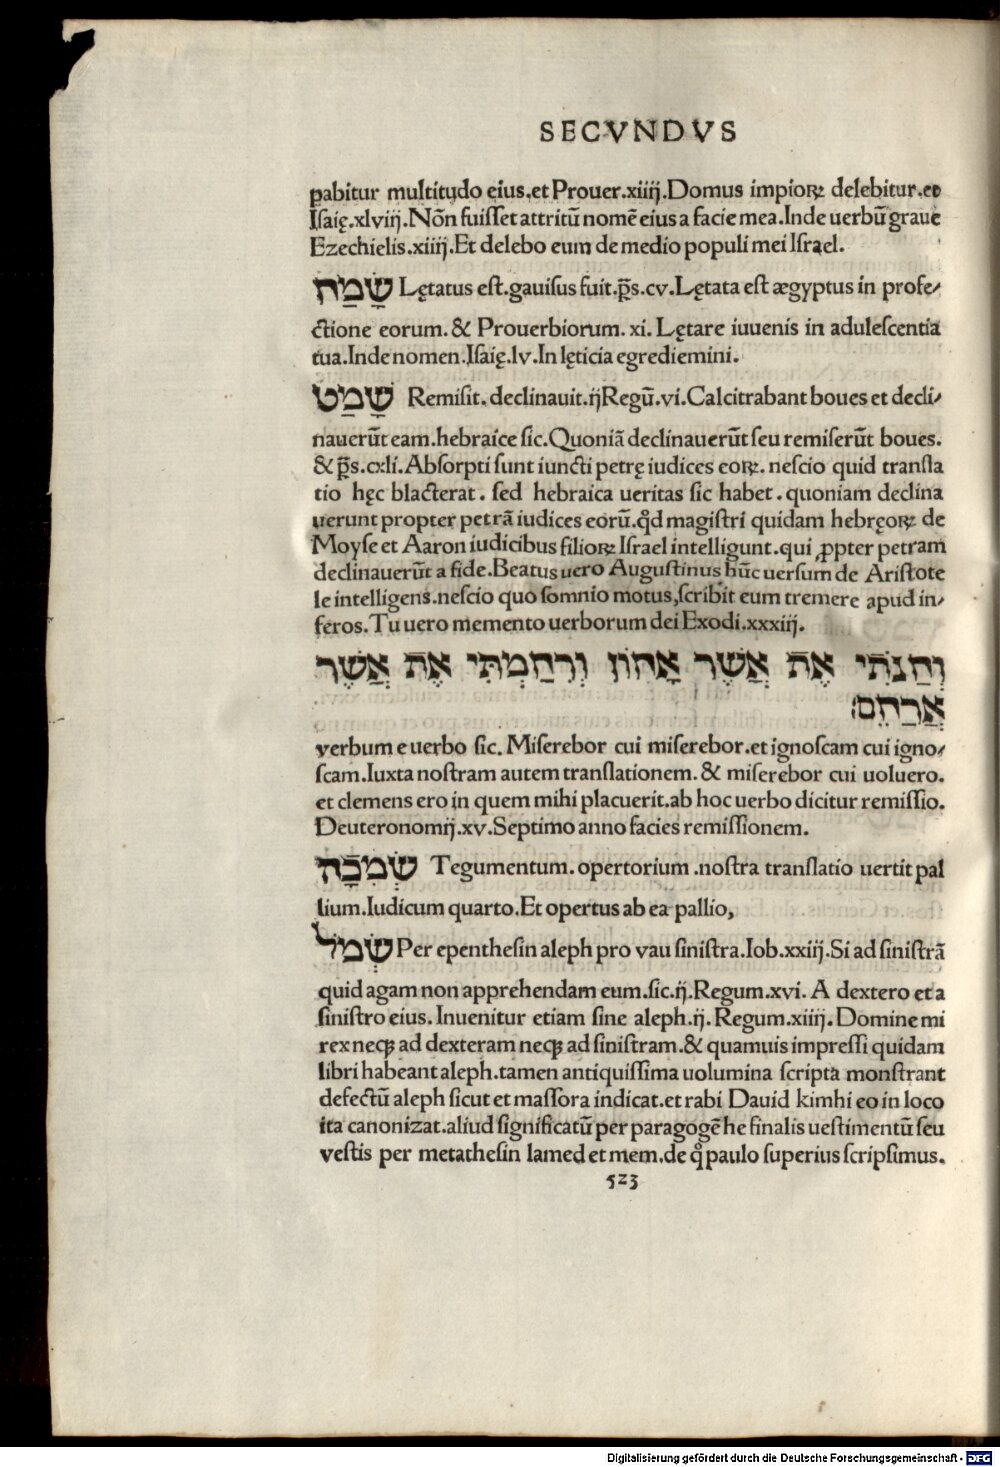 SECVNDVS
pabitur multitudo eius.et Prouer.xiiij.Domus impioꝝ delebitur.et
Isaię.xlviij.Nõn fuisset attritũ nomẽ eius a facie mea.Inde uerbũ graue
Ezechielis.xiiij.Et delebo eum de medio populi mei Israel.
שָׂמַח Lętatus est.gauisus fuit.p̄s.cv.Lętata est ægyptus in profe⸗
ctione eorum.& Prouerbiorum.xi.Lętare iuuenis in adulescentia
tua.Inde nomen.Isaię.lv.In lęticia egrediemini.
שָׁמַט Remisit.declinauit.ijRegũ.vi.Calcitrabant boues et decli⸗
nauerũt eam.hebraice sic.Quoniã declinauerũt seu remiserũt boues.
& p̄s.cxli.Absorpti sunt iuncti petrę iudices eoꝝ.nescio quid transla
tio hęc blacterat.sed hebraica ueritas sic habet.quoniam declina
uerunt propter petrã iudices eorũ.qđ magistri quidam hebręoꝝ de
Moyse et Aaron iudicibus filioꝝ Israel intelligunt.qui ꝓpter petram
declinauerũt a fide.Beatus uero Augustinus hũc uersum de Aristote
le intelligens.nescio quo somnio motus,scribit eum tremere apud in⸗
feros.Tu uero memento uerborum dei Exodi.xxxiij.
וְחַנֹּתִי אֶת אֲשֶׁר אָחוֹן וְרִחַמְתִּי אֶת אֲשֶׁר
אֲרַחֵם׃
verbum e uerbo sic. Miserebor cui miserebor.et ignoscam cui igno⸗
scam.Iuxta nostram autem translationem.& miserebor cui uoluero.
et clemens ero in quem mihi placuerit.ab hoc uerbo dicitur remissio.
Deuteronomij.xv.Septimo anno facies remissionem.
שְׂמִכָה Tegumentum.opertorium.nostra translatio uertit pal
lium.Iudicum quarto.Et opertus ab ea pallio,
שְׂמֹל Per epenthesin aleph pro vau sinistra.Iob.xxiij.Si ad sinistrã
quid agam non apprehendam eum.sic.ij.Regum.xvi. A dextero et a
sinistro eius.Inuenitur etiam sine aleph.ij.Regum.xiiij.Domine mi
rex neqꝫ ad dexteram neqꝫ ad sinistram.& quamuis impressi quidam
libri habeant aleph.tamen antiquissima uolumina scripta monstrant
defectũ aleph sicut et massora indicat.et rabi Dauid kimhi eo in loco
ita canonizat.aliud significatũ per paragogẽ he finalis uestimentũ seu
vestis per metathesin lamed et mem.de q̊ paulo superius scripsimus.
523
Digitalisierung gefördert durch die Deutsche Forschungsgemeinschaft - DFG